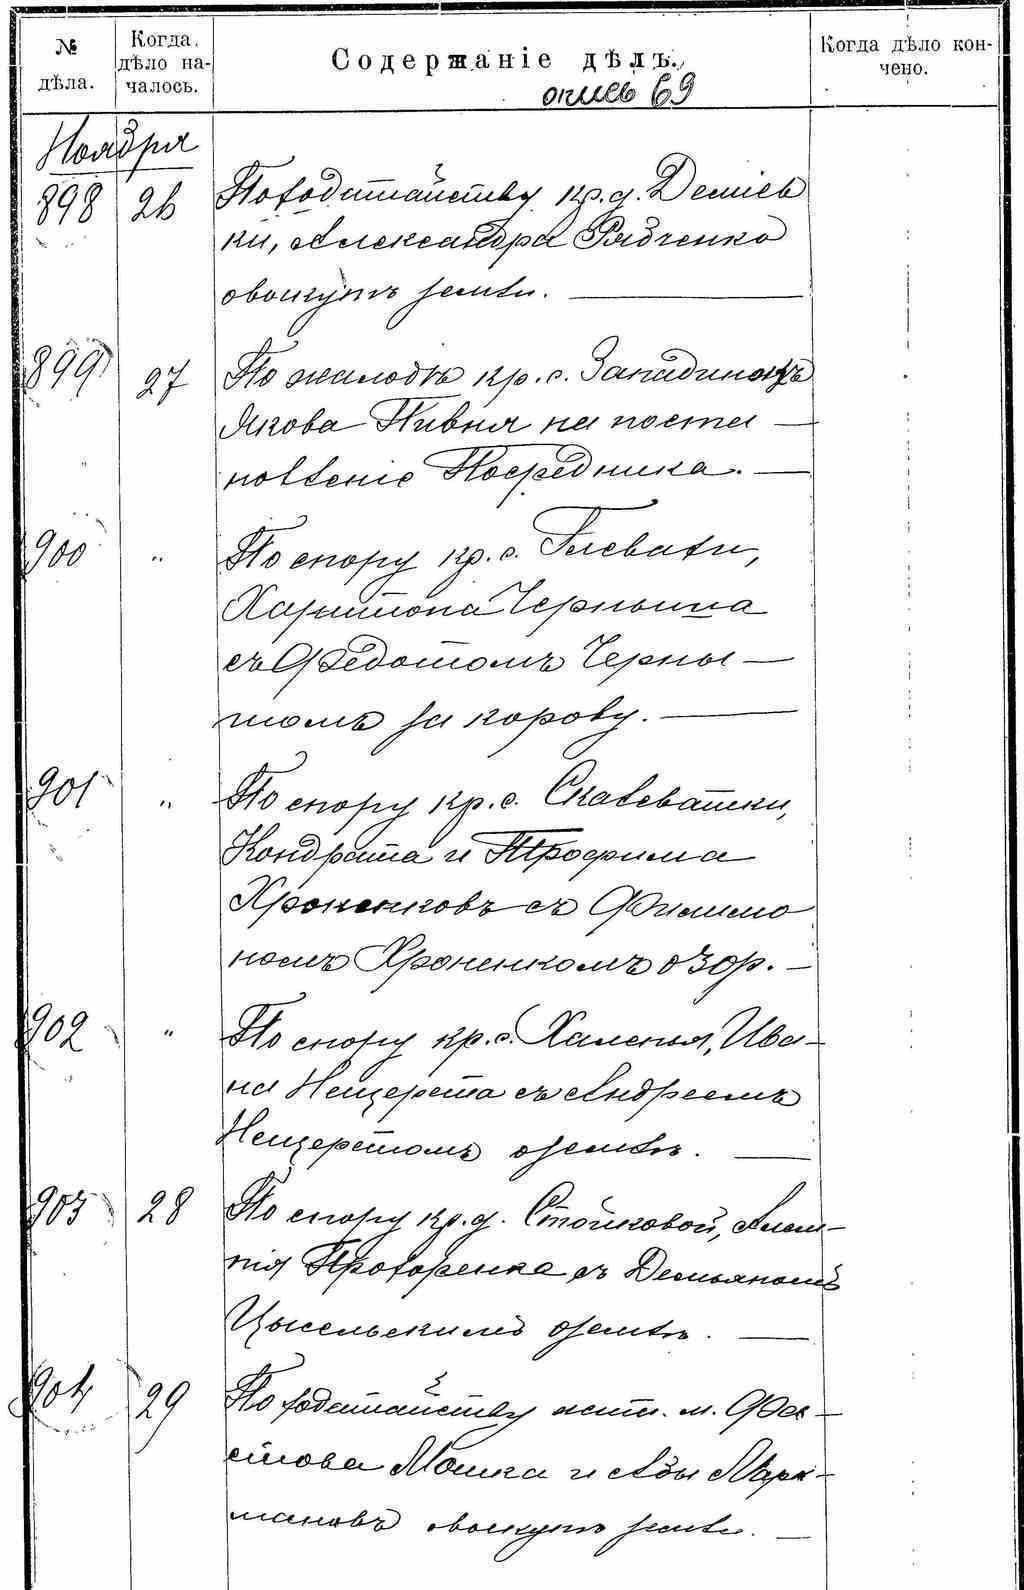 № дѣла.
Когда дѣло на-
чалось.
Содержаніе дѣлъ.
Когда дѣло кон-
чено.
опись 69
Ноября
898 26 По ходатайству кр. д. Деміев
ки, Александра Рябченко
о выкупѣ земли. —
899 27 По жалобѣ кр. с. Западинокъ
Якова Пивня на поста —
новленіе Посредника. —
900 " По спору кр. с. Глевахи,
Харитона Черныша
съ Федотомъ Черны —
шомъ за корову. —
901 " По спору кр. с. Скавевашки,
Кондрата и Трофима
Хроненковъ съ Филимо
номъ Хроненкомъ о 30 р. —
902 " По спору кр. с. Халепья, Ива —
на Нещерета съ Андреемъ
Нещеретомъ о землѣ. —
903 28 По спору кр. д. Стайковой,
Прохоренка съ Демьяномъ
о землѣ. —
904 29 По ходатайству жит. м. Фас —
това Мошка и Абы Марк —
мановъ о выкупѣ земли. —